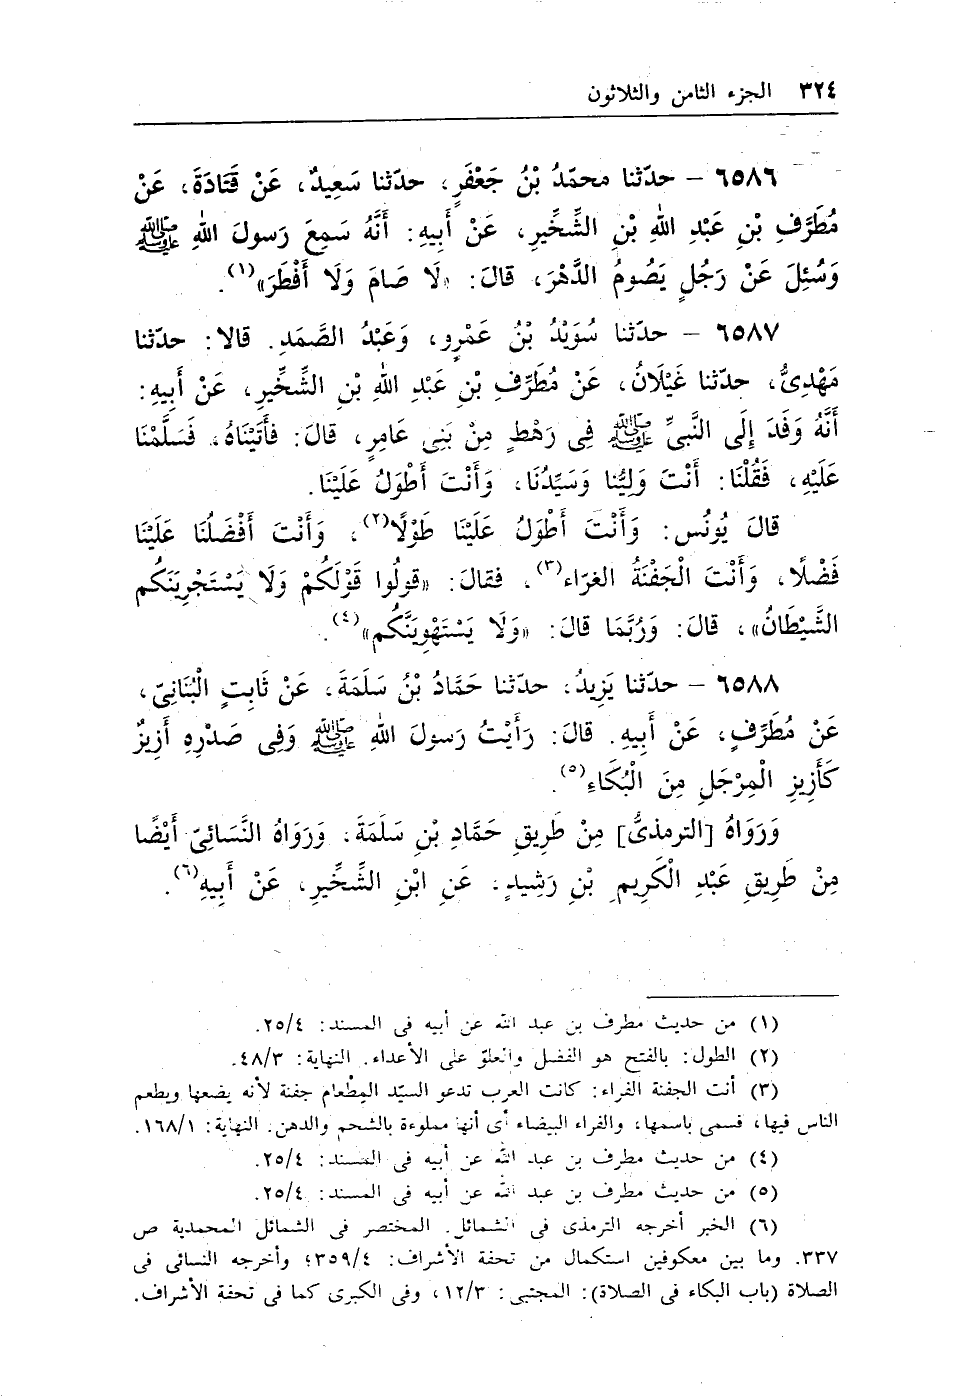 ٣٢٤ الجزء الثامن والثلاثون
٦٥٨٦ - حدّثنا محمّدُ بْنُ جَعْفَرٍ، حدّثنا سَعِيدٌ، عَنْ قَتَادَةَ، عَنْ
مُطَرَّفِ بْنِ عَبْدِ اللهِ بْنِ الشِّخِّيرِ، عَنْ أَبِيهِ: أَنَّهُ سَمِعَ رَسولَ اللهِ ﷺ
وَسُئِلَ عَنْ رَجُلٍ يَصُومُ الدَّهْرَ، قالَ: «لَا صَامَ وَلَا أَفْطَرَ»(١).
٦٥٨٧ - حدّثنا سُوَيْدُ بْنُ عَمْرٍو، وَعَبْدُ الصَّمَدِ. قالا: حدّثنا
مَهْدِىُّ، حدّثنا غَيْلَانُ، عَنْ مُطَرِّفِ بْنِ عَبْدِ اللهِ بْنِ الشِّخِّيرِ، عَنْ أَبِيهِ:
أَنَّهُ وَفَدَ إِلَى النَّبىِّ ﷺ فِى رَهْطٍ مِنْ بَنِى عَامِرٍ، قالَ: فَأَتَيْنَاهُ، فَسَلَّمْنَا
عَلَيْهِ، فَقُلْنَا: أَنْتَ وَلِيُّنا وَسَيِّدُنَا، وَأَنْتَ أَطْوَلُ عَلَيْنَا.
قالَ يُونُس: وَأَنْتَ أَطْوَلُ عَلَيْنَا طَوْلًا(٢)، وَأَنْتَ أَفْضَلُنَا عَلَيْنَا
فَضْلًا، وَأَنْتَ الْجَفْنَةُ الغرّاء(٣)، فقالَ: «قولُوا قَوْلَكُمْ وَلَا يَسْتَجْرِيَنَكُم
الشَّيْطَانُ»، قالَ: وَرُبَّمَا قالَ: «وَلَا يَسْتَهْوِيَنَّكُم»(٤).
٦٥٨٨ - حدّثنا يَزِيدُ، حدّثنا حَمَّادُ بْنُ سَلَمَةَ، عَنْ ثَابِتٍ الْبُنَانِىّ،
عَنْ مُطَرِّفٍ، عَنْ أَبِيهِ. قالَ: رَأَيْتُ رَسولَ اللهِ ﷺ وَفِى صَدْرِهِ أَزِيزٌ
كَأَزِيزِ الْمِرْجَلِ مِنَ الْبُكَاءِ(٥).
وَرَوَاهُ [الترمذىُّ] مِنْ طَرِيقِ حَمَّادِ بْنِ سَلَمَةَ. وَرَوَاهُ النَّسَائِىّ أَيْضًا
مِنْ طَرِيقِ عَبْدِ الْكَرِيمِ بْنِ رَشِيدٍ، عَنِ ابْنِ الشِّخِّيرِ، عَنْ أَبِيهِ(٦).
(١) من حديث مطرف بن عبد الله عن أبيه فى المسند: ٢٥/٤.
(٢) الطول: بالفتح هو الفضل والعلوّ على الأعداء. النهاية: ٤٨/٣.
(٣) أنت الجفنة الغراء: كانت العرب تدعو السيّد المِطْعام جفنة لأنه يضعها ويطعم
الناس فيها، فسمى باسمها، والغراء البيضاء أى أنها مملوءة بالشحم والدهن. النهاية: ١٦٨/١.
(٤) من حديث مطرف بن عبد الله عن أبيه فى المسند: ٢٥/٤.
(٥) من حديث مطرف بن عبد الله عن أبيه فى المسند: ٢٥/٤.
(٦) الخبر أخرجه الترمذى فى الشمائل. المختصر فى الشمائل المحمدية ص
٣٣٧. وما بين معكوفين استكمال من تحفة الأشراف: ٣٥٩/٤؛ وأخرجه النسائى فى
الصلاة (باب البكاء فى الصلاة): المجتبى: ١٢/٣، وفى الكبرى كما فى تحفة الأشراف.